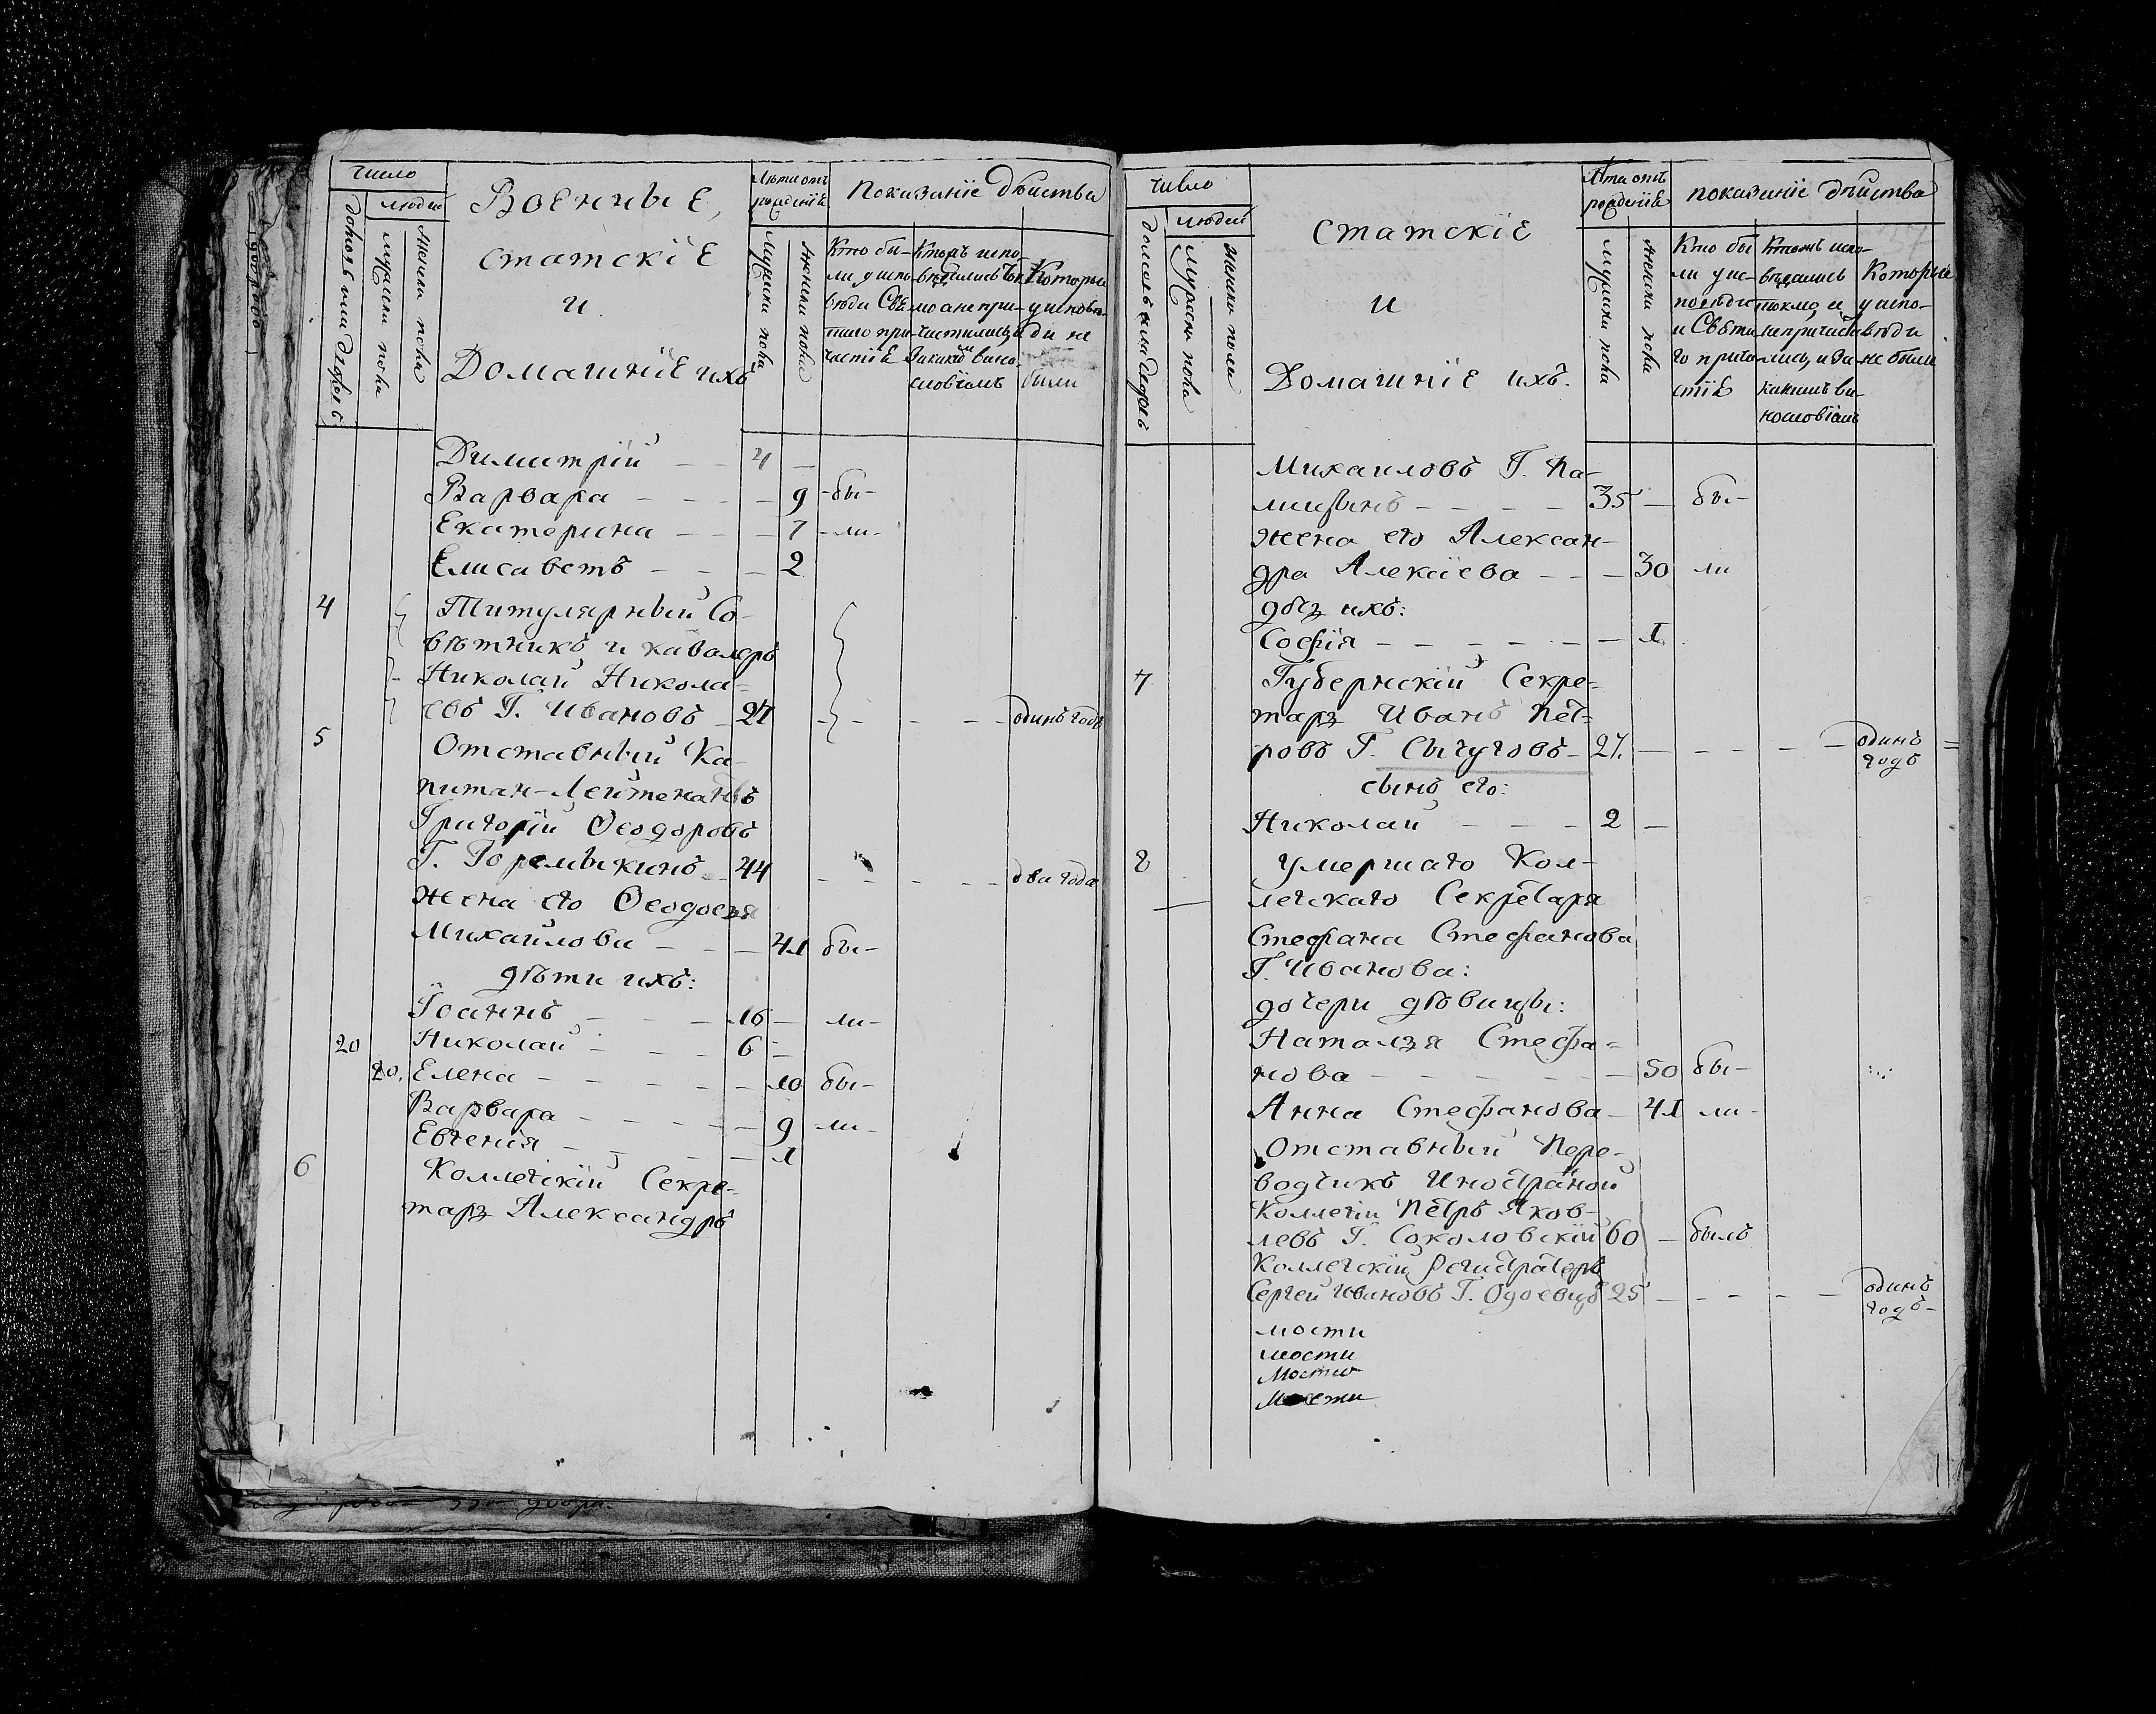 Число
людей
Домовъ или дворовъ
Мужска пола
Женска пола
Военные,
статскіе
и
Домашніе ихъ
Лѣта отъ
рожденія
Мужска пола
Женска пола
Показаніе дѣйства
Кто бы-
ли у испо-
вѣди Свя-
таго при-
частія
Кто испо-
вѣдались
а не при-
частились
за какимъ вино-
словіемъ
Которые
у исповѣ-
ди не
были
Димитрій — — 4 —
Варвара — — — — 9 - бы-
Екатерина — — — 7 - ли-
Елисаветъ — — — 2
4 Титулярный Со-
вѣтникъ и кавалеръ
Николай Никола-
евъ Г. Ивановъ — 27 - - - - одинъ годъ
5 Отставный Ка-
питан-Лейтенантъ
Григорій Ѳеодоровъ
Г. Горемыкинъ — 44 - - - - два года
жена его Ѳеодосья
Михайлова — — — 41 бы-
дѣти ихъ:
Іоаннъ — — — 16 — ли-
20 Николай — — — 6 —
20. Елена — — — — — 10 бы-
Варвара — — — — — 9 ли-
Евгенія — — — — 1
6 Коллегскій Секре-
тарь Александръ
Число
людей
Домовъ или дворовъ
Мужска пола
Женска пола
статскіе
и
Домашніе ихъ.
Лѣта отъ
рожденія
Мужска пола
Женска пола
показаніе дѣйства
Кто бы
ли у ис-
повѣди
и Свята
го прича
стія
Кто испо-
вѣдались
токмо, и
непричасти
лись, и за
какимъ ви-
нословіемъ
Которые
у испо-
вѣди
не были
Михаиловъ Г. Па-
— — — — 35 — бы-
жена его Алексан-
дра Алексіева — — — 30 ли
дочь ихъ:
Софія — — — — — — 1
7 Губернскій Секре-
тарь Иванъ Пет-
ровъ Г. Сычуговъ — 27. — - - - — одинъ
годъ
сынъ его:
Николай — — — 2 —
8 Умершаго Кол-
легскаго Секретаря
Стефана Стефанова
Г. Иванова:
дочери дѣвицы:
Наталья Стефа-
нова — — — — — — 50 бы-
Анна Стефанова — 41 ли-
Отставный Пере-
водчикъ Иностраной
Коллегіи Петръ Яков-
левъ Г. Соколовскій 60 — былъ
Коллегскій Регистраторъ
Сергей Ивановъ Г. Одоевцъ 25 — - - - — одинъ
годъ-
мости
мости
Мости
Мости